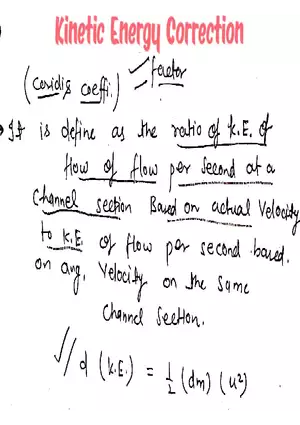 Kinetic Energy Correction
factor
(coridis coeffi.)
It is define as the ratio of K.E. of
flow of flow per second at a
channel section Based on actual velocity
to K.E. of flow per second based
on avg. velocity on the same
channel section.
d (K.E.) = 1/2 (dm) (u²)